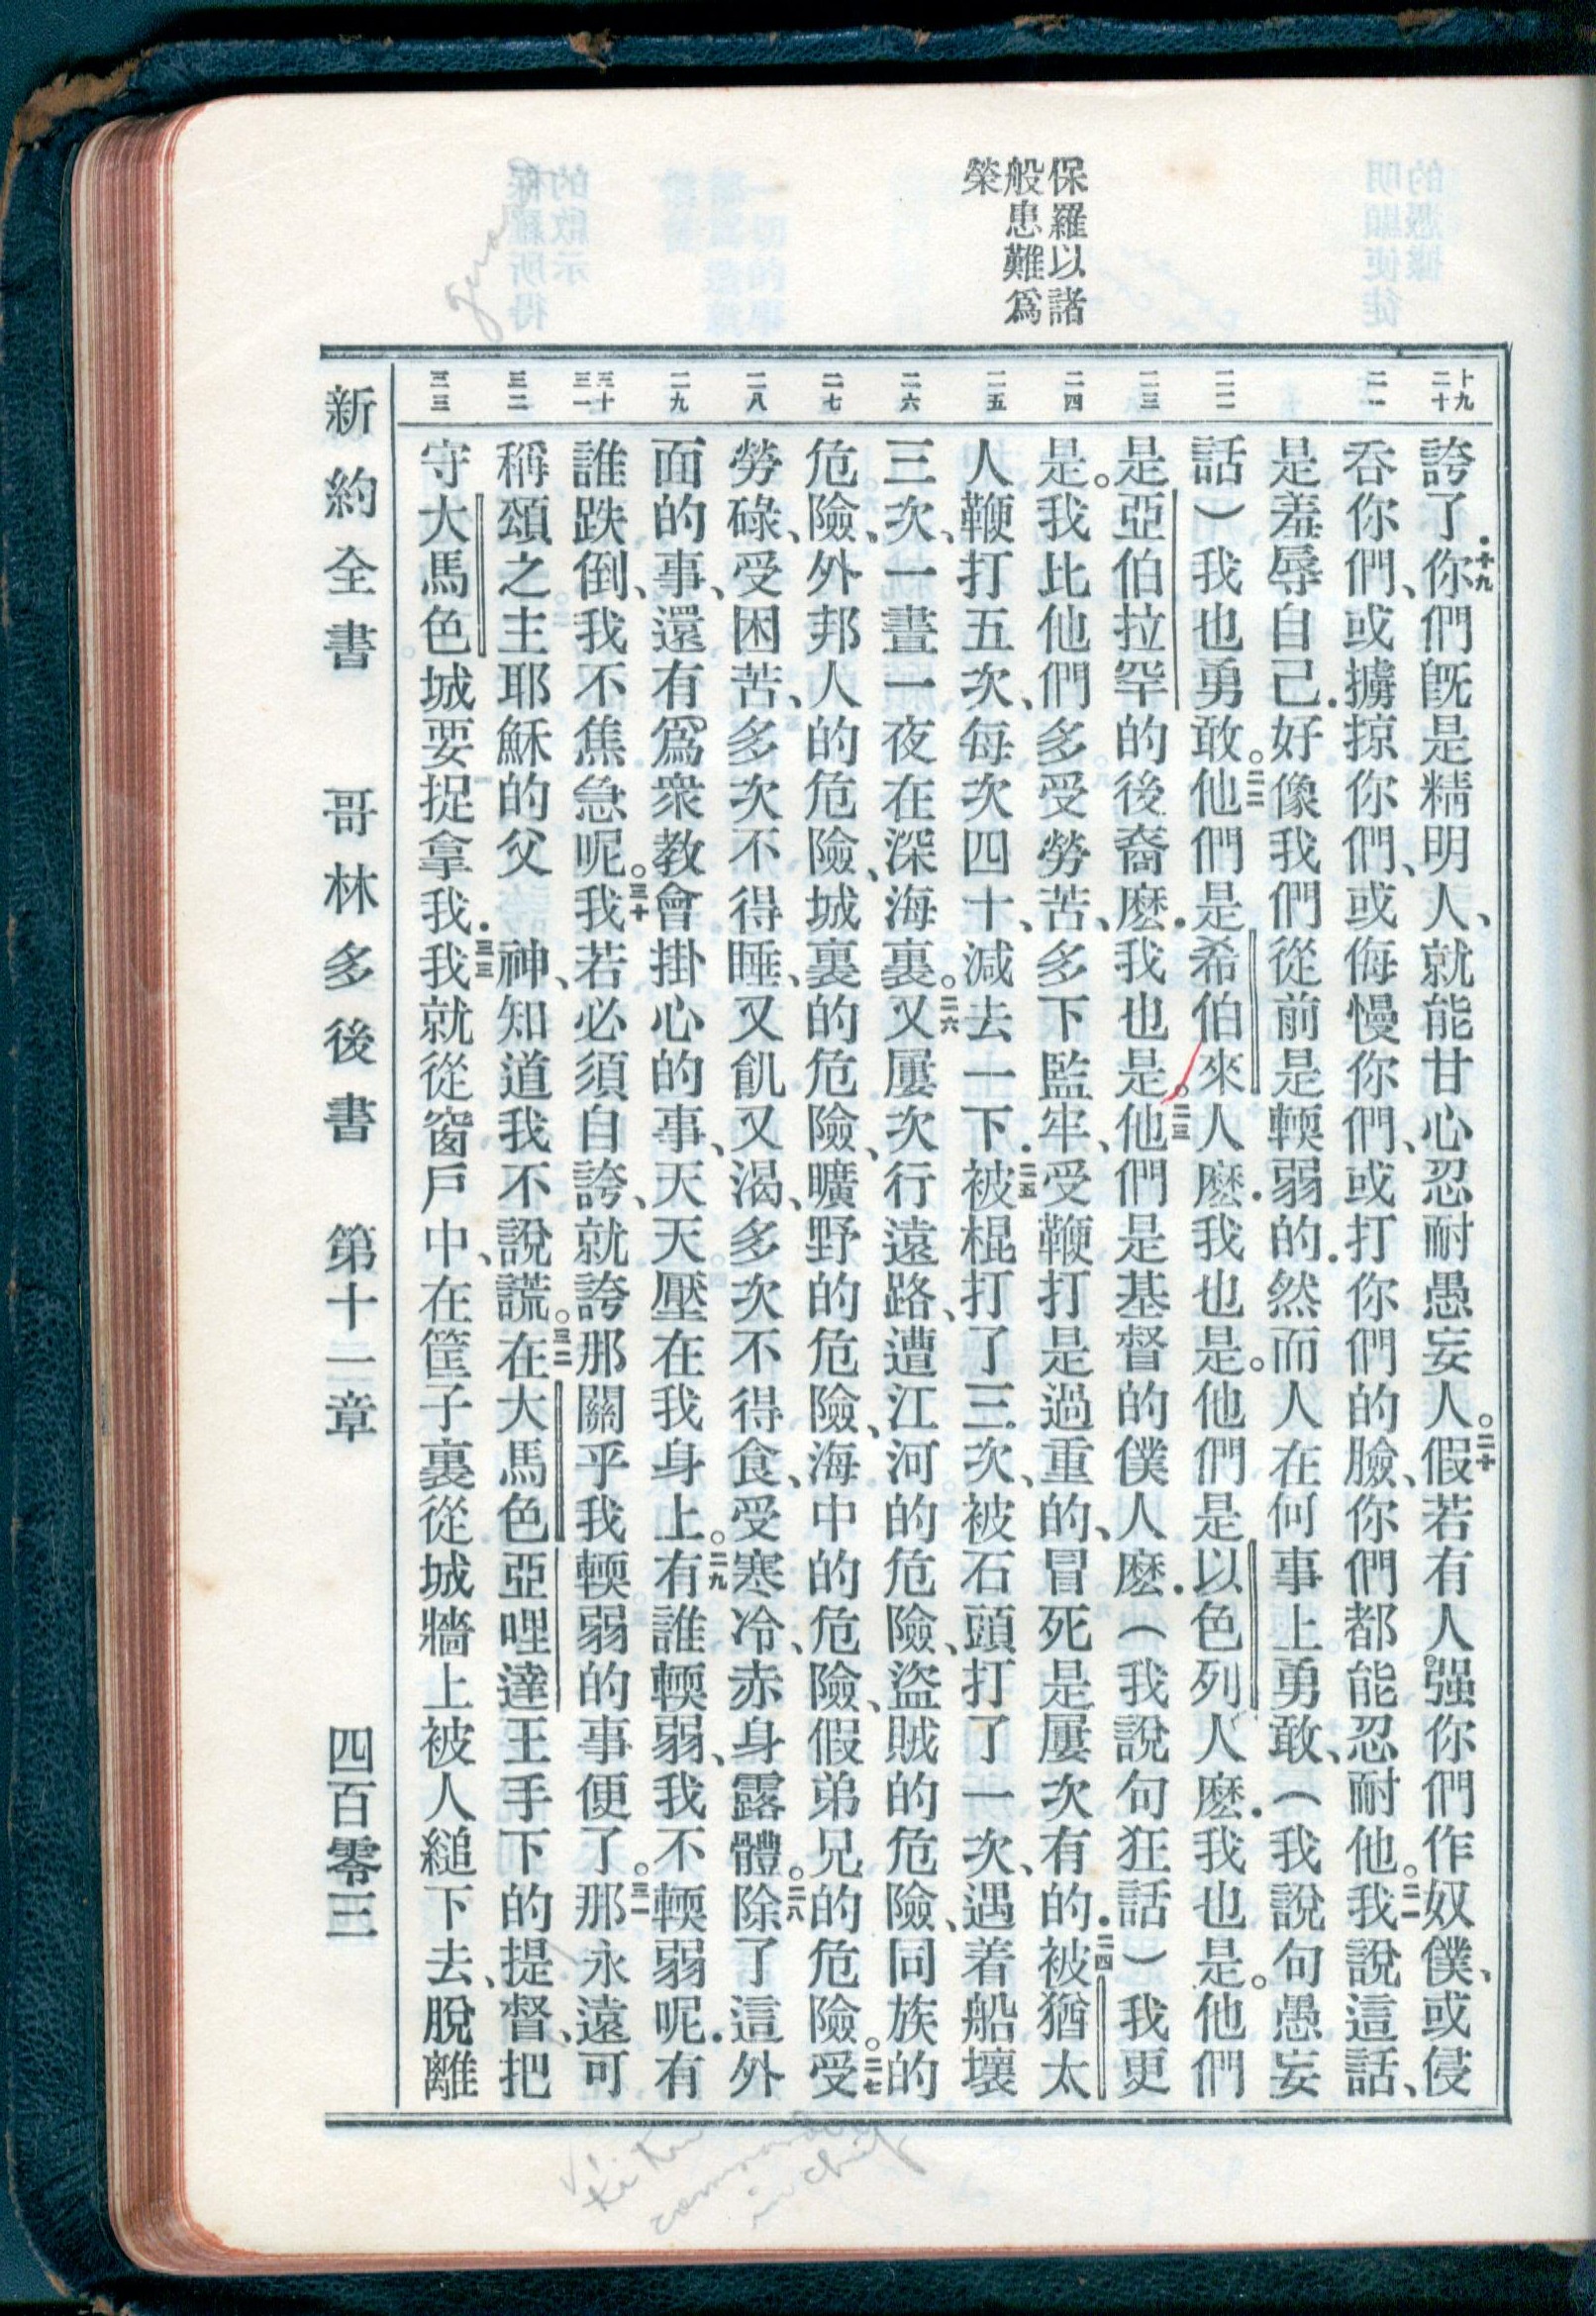 保羅以諸
般患難爲
榮
十九
二十
二一
二二
二三
二四
二五
二六
二七
二八
二九
三十
三一
三二
三三
誇了．十九你們旣是精明人、就能甘心忍耐愚妄人。二十假若有人。强你們作奴僕、或侵
吞你們、或擄掠你們、或侮慢你們、或打你們的臉、你們都能忍耐他。二一我說這話、
是羞辱自己．好像我們從前是輭弱的．然而人在何事上勇敢、（我說句愚妄
話）我也勇敢。二二他們是希伯來人麽．我也是。他們是以色列人麽．我也是。他們
是亞伯拉罕的後裔麽．我也是。二三他們是基督的僕人麽．（我說句狂話）我更
是。我比他們多受勞苦、多下監牢、受鞭打是過重的、冒死是屢次有的．二四被猶太
人鞭打五次、每次四十、減去一下．二五被棍打了三次、被石頭打了一次、遇着船壞
三次、一晝一夜在深海裏。二六又屢次行遠路、遭江河的危險、盜賊的危險、同族的
危險、外邦人的危險、城裏的危險、曠野的危險、海中的危險、假弟兄的危險。二七受
勞碌、受困苦、多次不得睡、又飢又渴、多次不得食、受寒冷、赤身露體。二八除了這外
面的事、還有爲衆教會掛心的事、天天壓在我身上。二九有誰輭弱、我不輭弱呢．有
誰跌倒、我不焦急呢。三十我若必須自誇、就誇那關乎我輭弱的事便了。三一那永遠可
稱頌之主耶穌的父　神、知道我不說謊。三二在大馬色亞哩達王手下的提督、把
守大馬色城要捉拿我．三三我就從窗戶中、在筐子裏從城牆上被人縋下去、脫離
新約全書　哥林多後書　第十一章　四百零三
commander
in chief